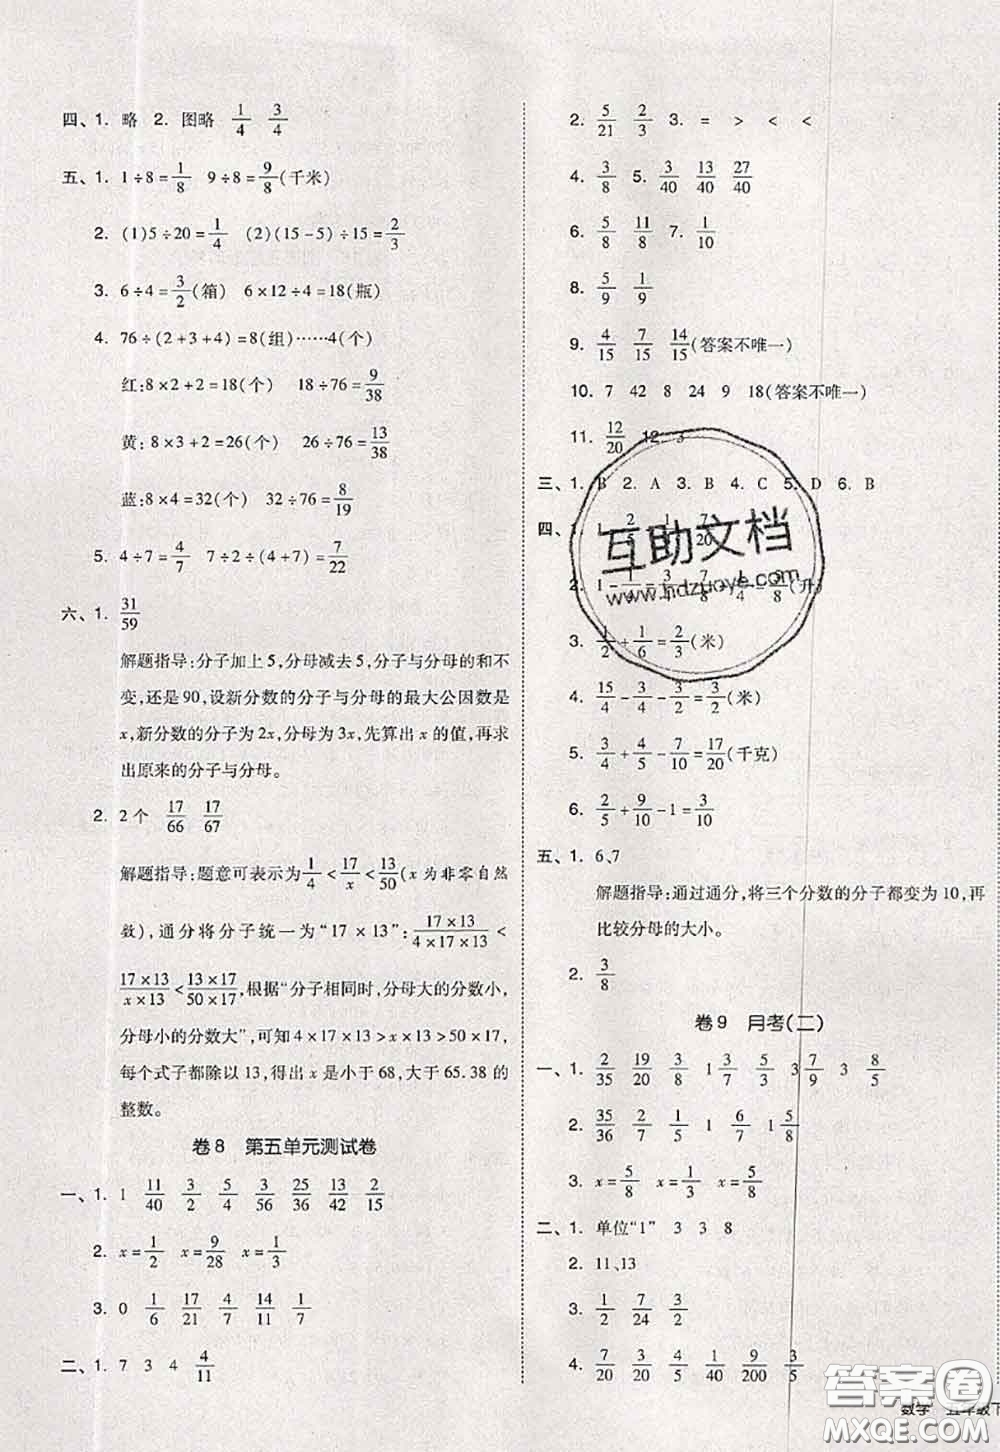 四、1. 略 2. 图略 1/4 3/4
五、1. 1÷8=1/8 9÷8=9/8(千米)
2. (1)5÷20=1/4 (2)(15-5)÷15=2/3
3. 6÷4=3/2(箱) 6×12÷4=18(瓶)
4. 76÷(2+3+4)=8(组)……4(个)
红:8×2+2=18(个) 18÷76=9/38
黄:8×3+2=26(个) 26÷76=13/38
蓝:8×4=32(个) 32÷76=8/19
5. 4÷7=4/7 7÷2÷(4+7)=7/22
六、1. 31/59
解题指导:分子加上5,分母减去5,分子与分母的和不
变,还是90,设新分数的分子与分母的最大公因数是
x,新分数的分子为2x,分母为3x,先算出x的值,再求
出原来的分子与分母。
2. 2个 17/66 17/67
解题指导:题意可表示为1/4<17/x<13/50(x为非零自然
数),通分将分子统一为“17×13”:17×13/4×17×13<
17×13/x×13<13×17/50×17,根据“分子相同时,分母大的分数小,
分母小的分数大”,可知4×17×13>x×13>50×17,
每个式子都除以13,得出x是小于68,大于65.38的
整数。
卷8 第五单元测试卷
一、1. 1 11/40 3/2 5/4 3/56 25/36 13/12 2/15
2. x=1/2 x=9/28 x=1/3
3. 0 1/6 17/21 4/7 14/11 1/7
二、1. 7 3 4 4/11
2. 5/21 2/3 3. = > < <
4. 3/8 5. 3/40 13/40 27/40
6. 5/8 11/8 7. 1/10
8. 5/9 1/9
9. 4/15 7/15 14/15(答案不唯一)
10. 7 42 8 24 9 18(答案不唯一)
11. 12/20 12. 3
三、1. B 2. A 3. B 4. C 5. D 6. B
四、1. 1 7/20
互助文档
www.hdzuoye.com
2. 1 3/4 7/8 (升)
3. 1/2+1/6=2/3(米)
4. 15/4-3/4-3/2=3/2(米)
5. 3/4+4/5-7/10=17/20(千克)
6. 2/5+9/10-1=3/10
五、1. 6、7
解题指导:通过通分,将三个分数的分子都变为10,再
比较分母的大小。
2. 3/8
卷9 月考(二)
一、1. 2/35 19/20 3/8 1 3/4 5/3 3 7/9 3 8/5
2. 35/36 2/7 1/5 1 6/7 1 5/8
3. x=5/8 x=1/3 x=5/8
二、1. 单位“1” 3 3 8
2. 11、13
3. 1/2 7/24 3/2
4. 7/20 3/20 4/5 1/40 9/200 3/5
数学 五年级下
答案圈
MXQE.COM